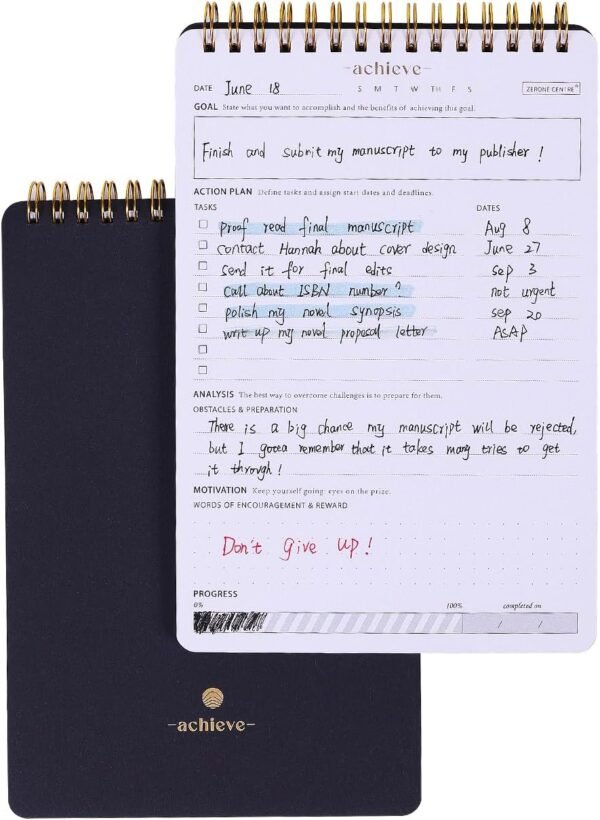 -achieve-
DATE June 18 S M T W TH F S ZERONE CENTRE®
GOAL State what you want to accomplish and the benefits of achieving this goal.
Finish and submit my manuscript to my publisher !
ACTION PLAN Define tasks and assign start dates and deadlines.
TASKS DATES
proof read final manuscript Aug 8
contact Hannah about cover design June 27
send it for final edits sep 3
call about ISBN number? not urgent
polish my novel synopsis sep 20
writ up my novel proposal letter ASAP
ANALYSIS The best way to overcome challenges is to prepare for them.
OBSTACLES & PREPARATION
There is a big chance my manuscript will be rejected,
but I gotta remember that it takes many tries to get
it through!
MOTIVATION Keep yourself going eyes on the prize.
WORDS OF ENCOURAGEMENT & REWARD
Don't give up!
PROGRESS
0% 100% completed on
/ /
-achieve-